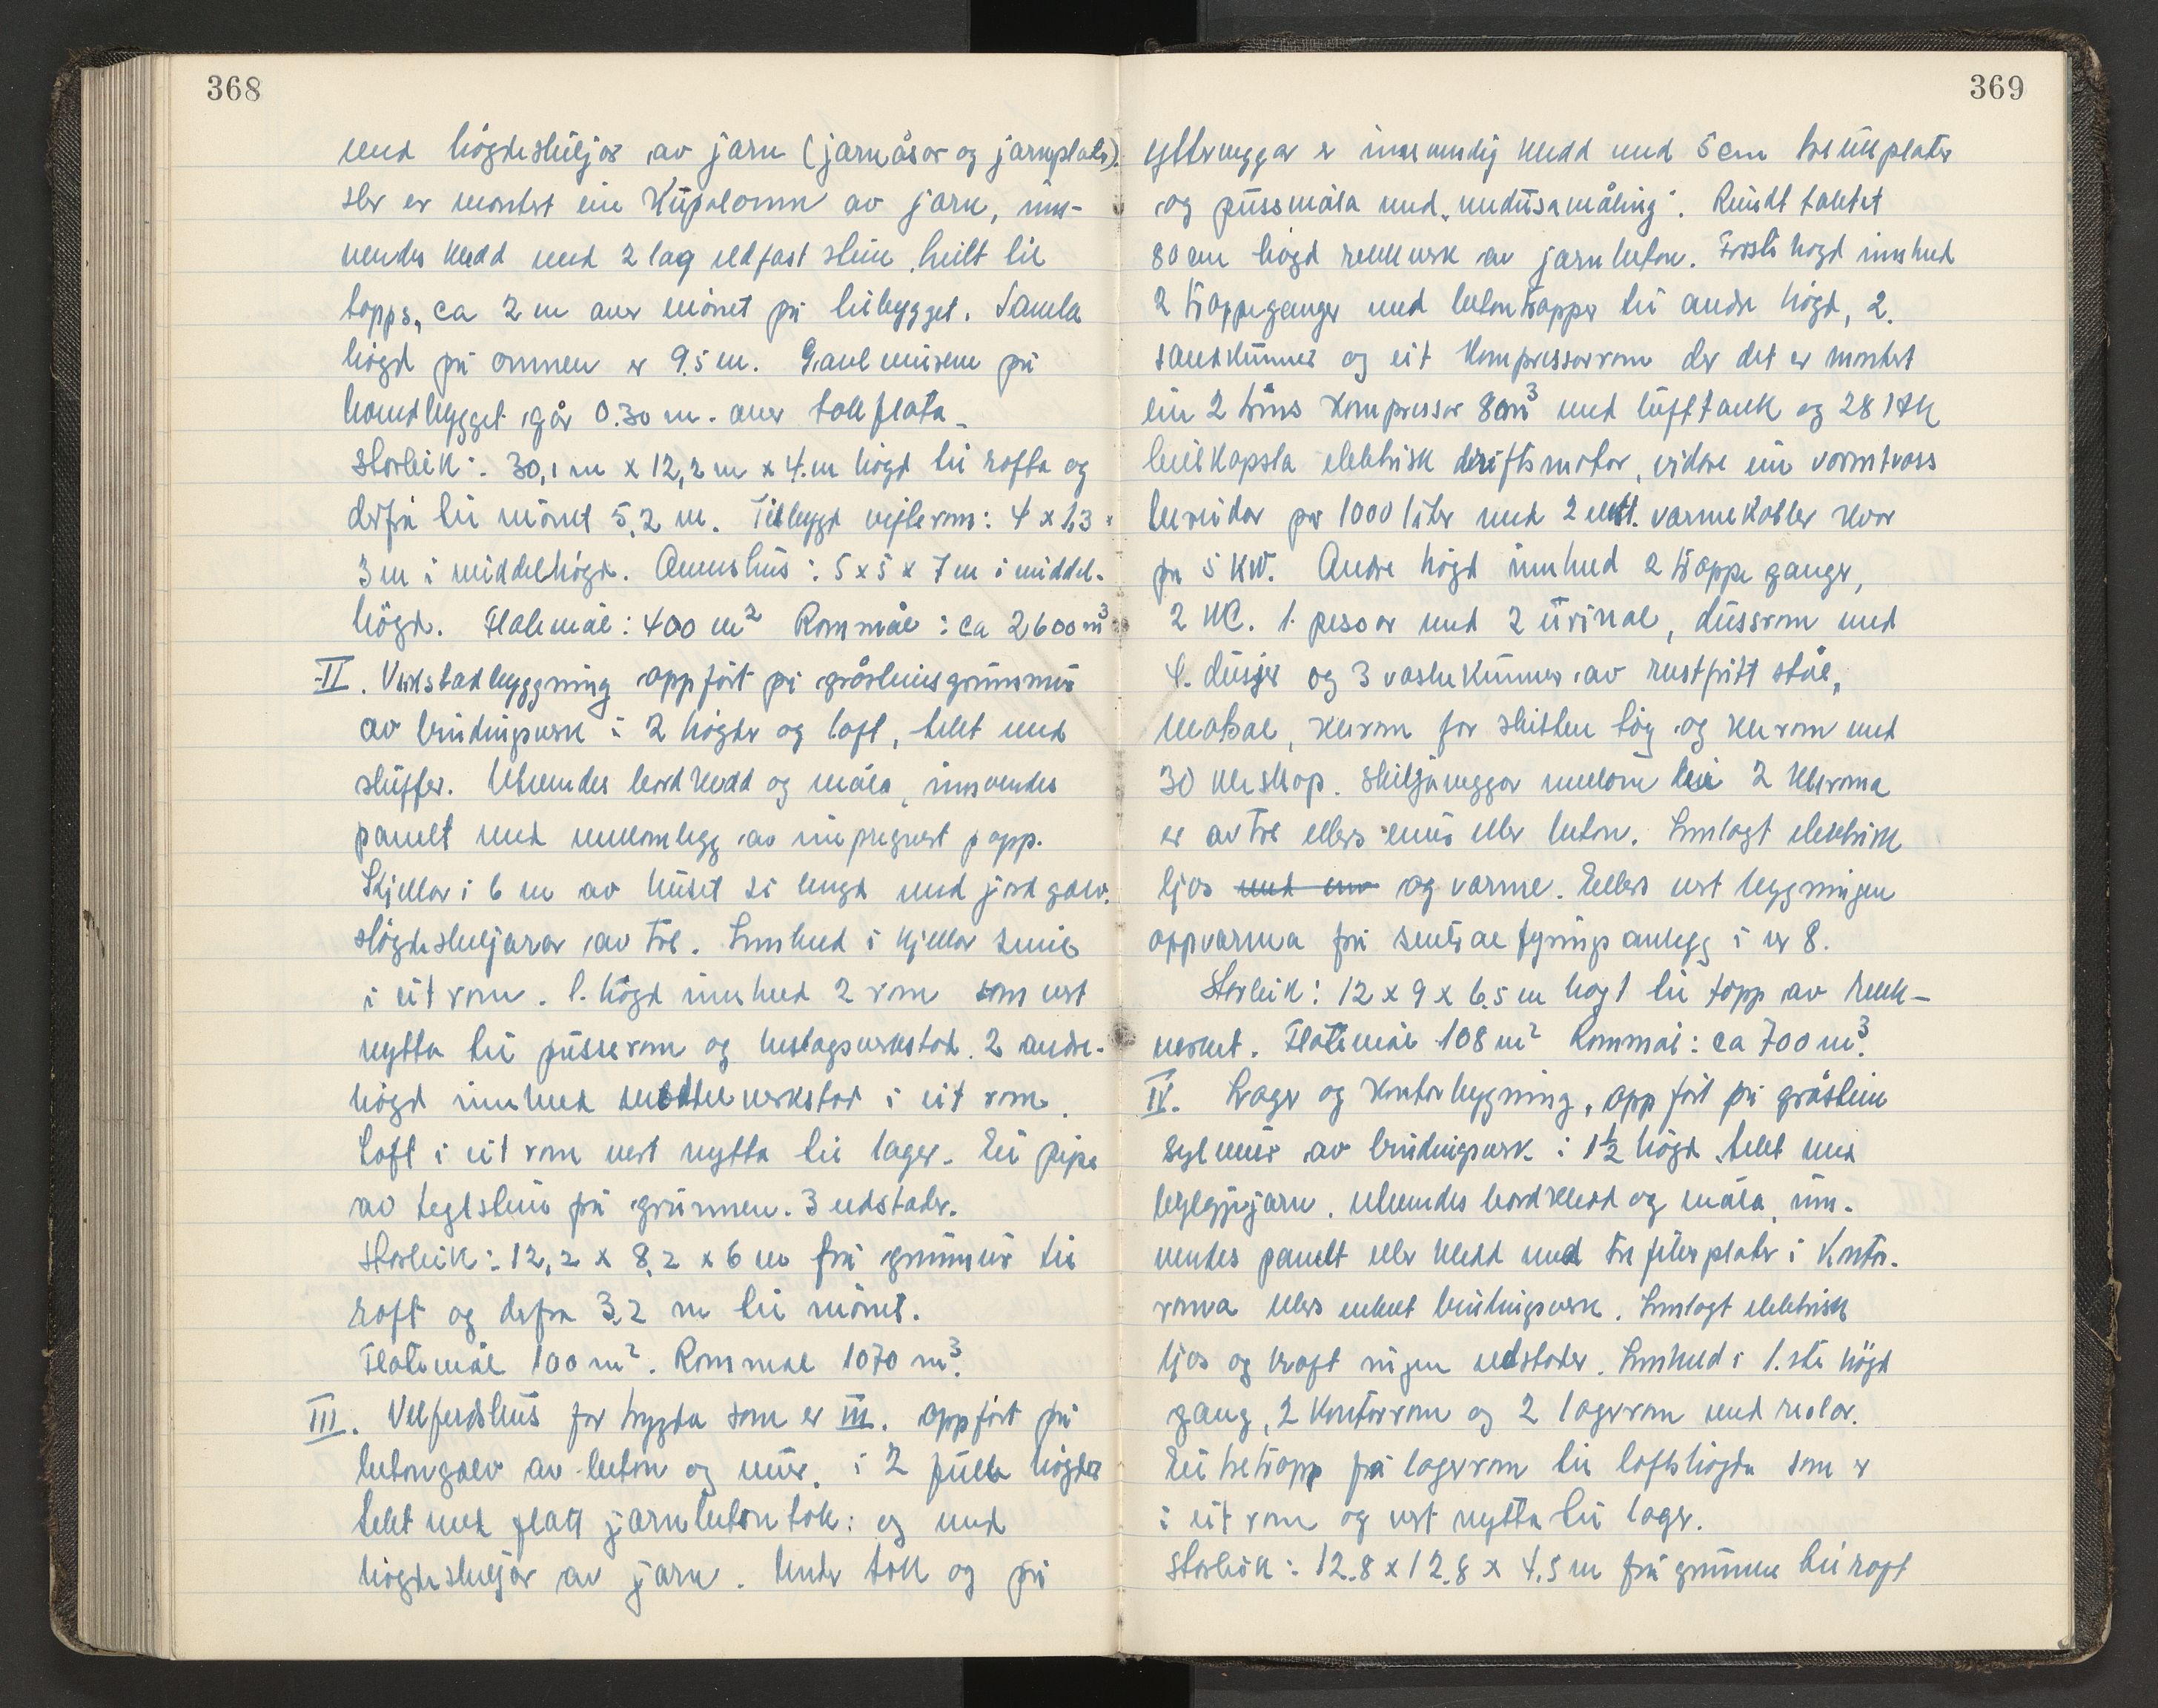 368
med högdeskiljor av jarn (jarnåsar og jarnplate).
Der er montert ein Kupolomn av jarn, inn-
vendes kledd med 2 lag eldfast stein heilt til
topps, ca 2 m over mönet på tilbygget. Samla
högd på omnen er 9.5 m. Gavlmurene på
hovudbygget går 0.30 m. over takflata.
Storleik: 30,1 m x 12,2 m x 4. m högd til rafta og
derfrå til mönet 5,2 m. Tilbygd vifterom: 4 x 2,3 x
3 m i middelhögd. Omnshus: 5 x 5 x 7 m i middel-
högd. Flatemål: 400 m² Rommål: ca 2600 m³
II. Verkstadbyggning oppfört på gråsteinsgrunnmur
av bindingsverk i 2 högder og loft, tekt med
skiffer. Utvendes bordkledd og måla, innvendes
panelt med mellomlegg av impregnert papp.
Kjellar i 6 m av huset si lengd med jordgolv.
Högdeskiljarar av tre. Innheld i kjellar smie
i eit rom. 1. högd innheld 2 rom som vert
nytta til pusserom og beslagsverkstad. 2 andre-
högd innheld modellverkstad i eit rom.
Loft i eit rom vert nytta til lager. Ei pipe
av teglstein frå grunnen. 3 eldstader.
Storleik: 12,2 x 8,2 x 6 m frå grunnmur til
raft og derfra 3,2 m til mönet.
Flatemål 100 m². Rommål 1070 m³.
III. Velferdshus for trygda som er III. oppfört på
betongolv av beton og mur, i 2 fulle högder
tekt med flatt jarnbetontak: og med
högdeskiljor av jarn. Under tak og på
369
ytterveggar er innvendig kledd med 5 cm treullplater
og pussmåla med "medusamåling". Rundt taket
80 cm högd rekkverk av jarnbeton. Fyrste högd innheld
2 trappeganger med betontrapper til andre högd, 2.
sandkummer og eit kompressorrom der det er montert
ein 2 trins kompressor 8 m³ med lufttank og 28 HK
heilkapsla elektrisk driftsmotor, vidare ein varmtvass
bereidar på 1000 liter med 2 elekt. varmekabler kvar
på 5 KW. Andre högd innheld 2 trappeganger,
2 WC. 1. pesoar med 2 urinal, dussrom med
4. dusjer og 3 vaskekummer av rustfritt stål,
matsal, klerom for skitten töy og klerom med
30 kleskap. Skiljeveggar mellom dei 2 kleroma
er av tre ellers mur eller beton. Innlagt elektrisk
ljos med og varme. Ellers vert byggningen
oppvarma frå sentralfyringsanlegg i nr 8.
Storleik: 12 x 9 x 6,5 m högt til topp av rekk-
verket. Flatemål 108 m² Rommål: ca 700 m³.
IV. Lager og kontorbygning, oppfört på gråstein
sylmur av bindingsverk i 1½ högd, tekt med
bylgjejarn. utvendes bordkledd og måla, inn-
vendes panelt eller kledd med trefiberplater i kontor-
roma ellers enkelt bindingsverk. Innlagt elektrisk
ljos og kraft ingen eldstader. Innheld i 1.ste högd
gang, 2 kontorrom og 2 lagerrom med reolar.
Ei tretrapp frå lagerrom til loftshögda som er
i eit rom og vert nytta til lager.
Storleik: 12.8 x 12.8 x 4.5 m frå grunnen til raft